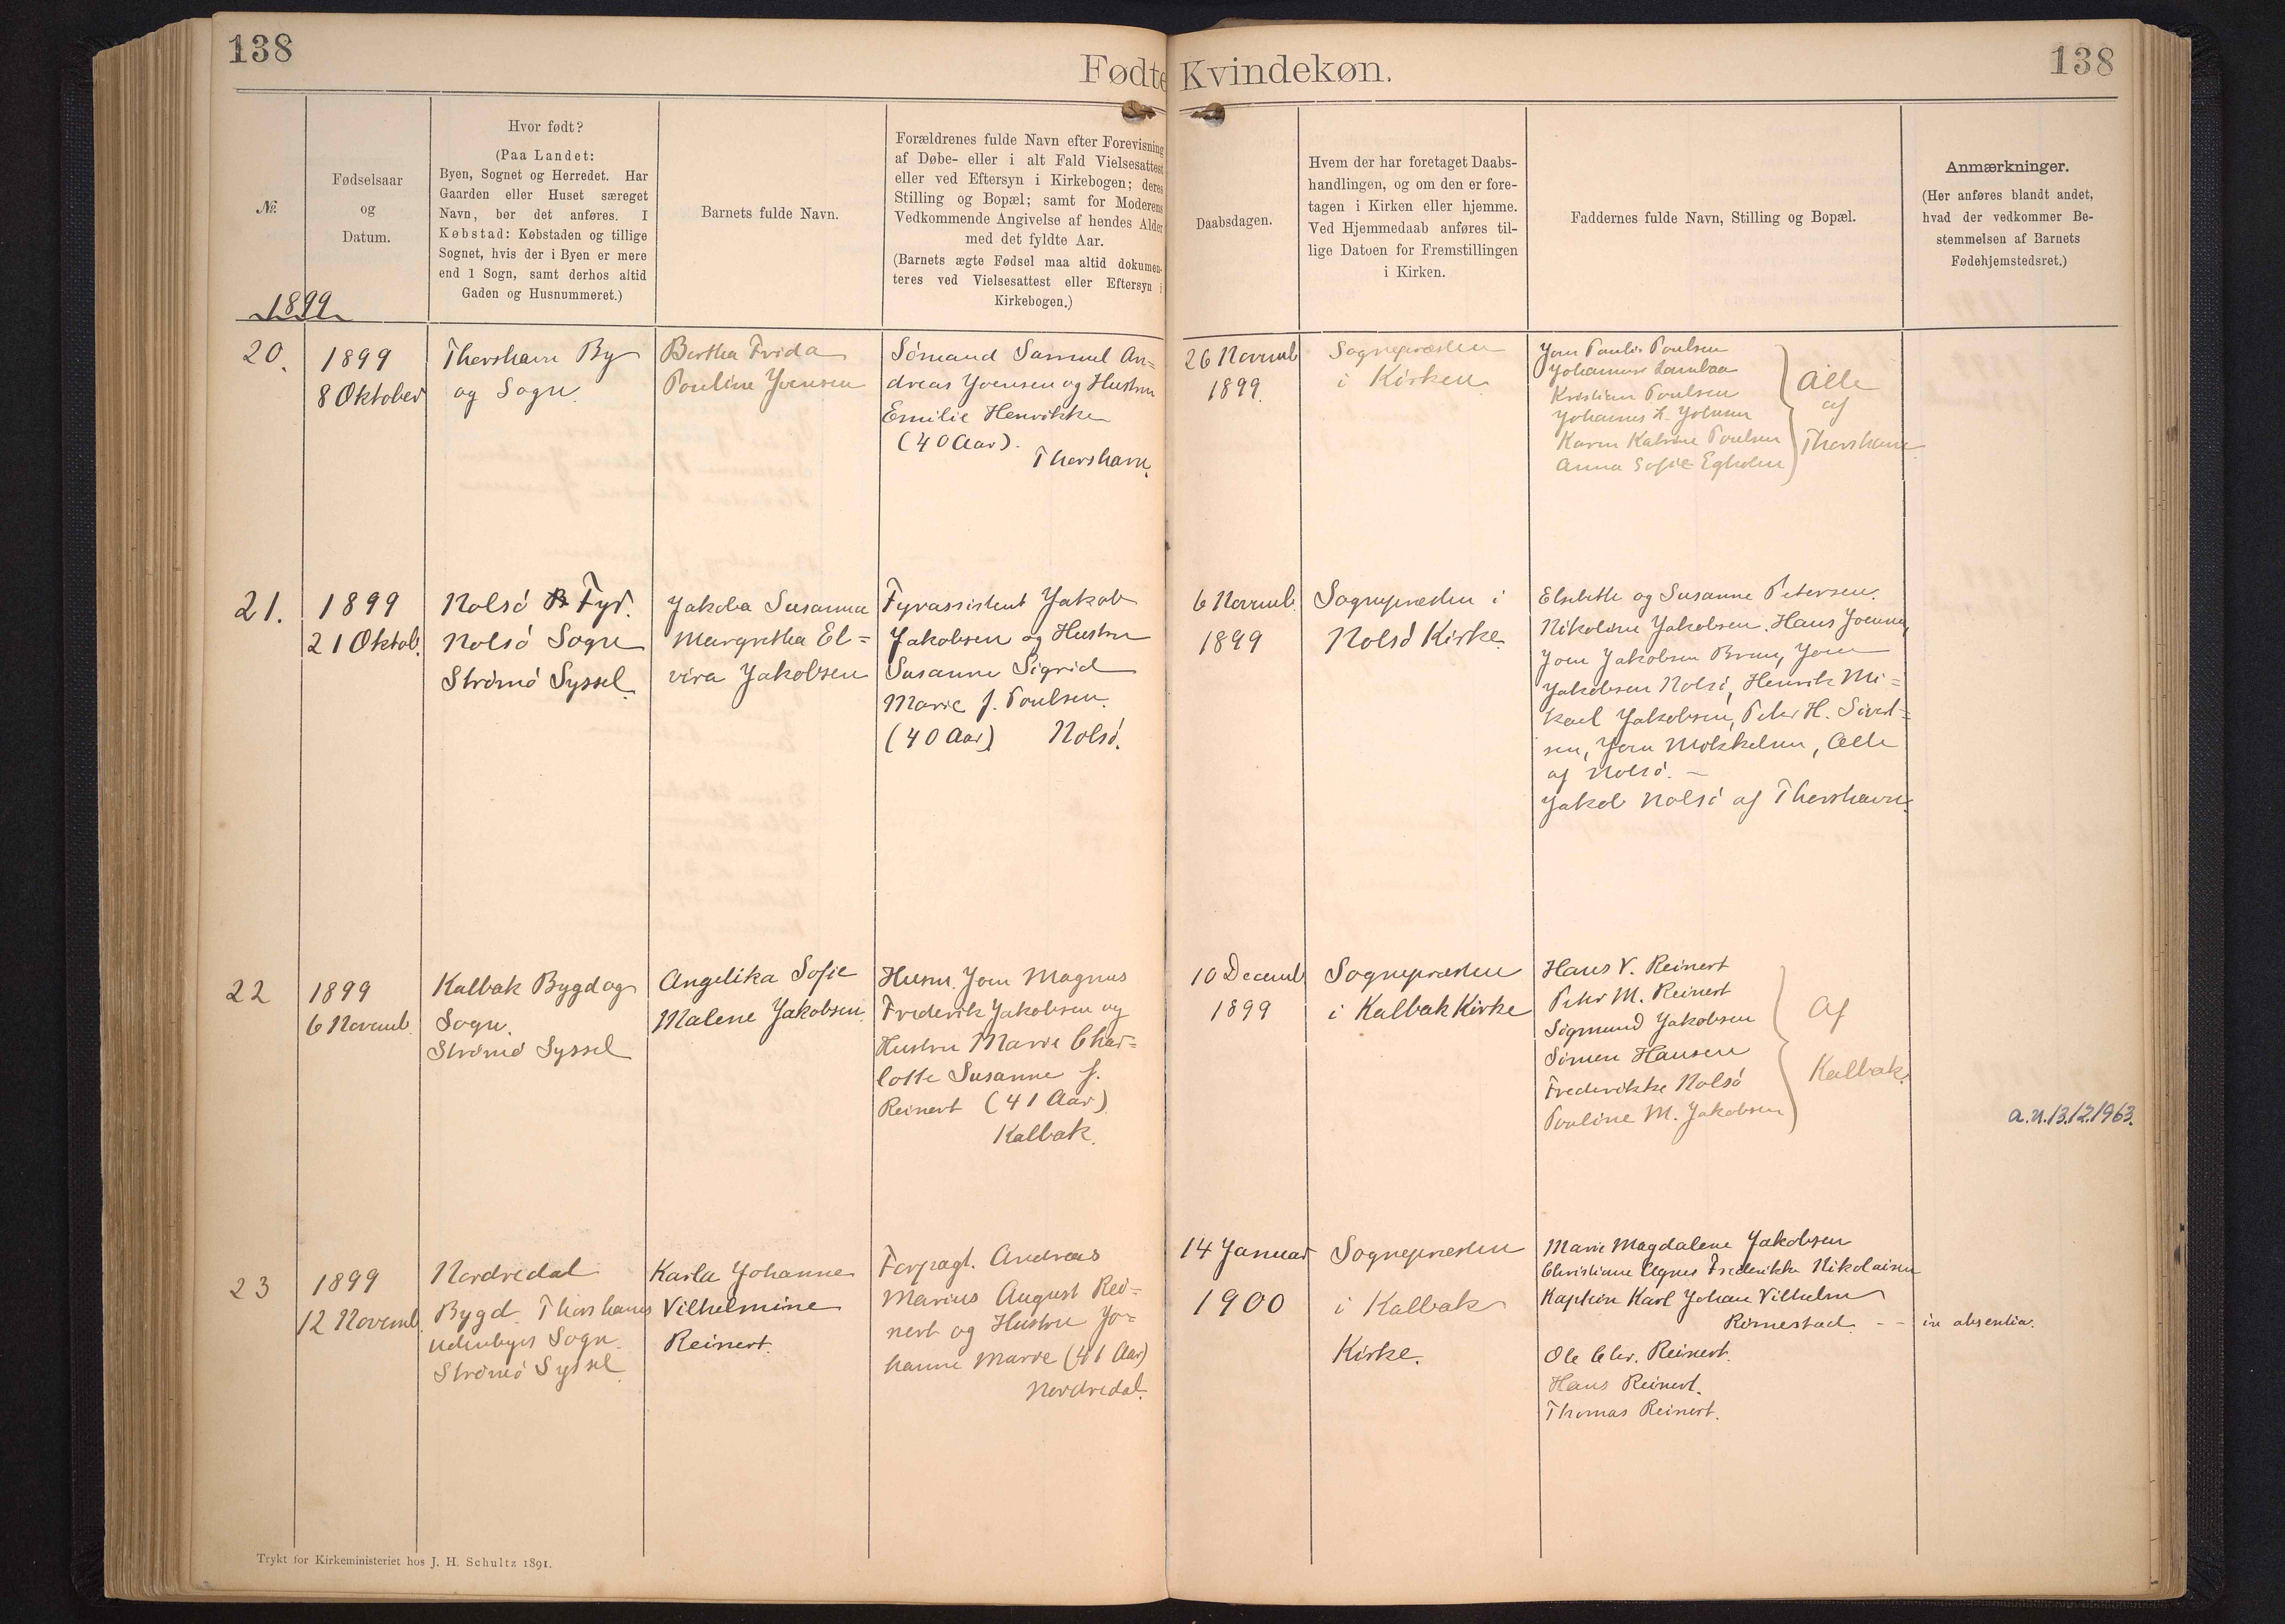 138
Fødte Kvindekøn.
138
№.
Fødselsaar
og
Datum.
Hvor født?
(Paa Landet:
Byen, Sognet og Herredet. Har
Gaarden eller Huset særeget
Navn, bør det anføres. I
Købstad: Købstaden og tillige
Sognet, hvis der i Byen er mere
end 1 Sogn, samt derhos altid
Gaden og Husnummeret.)
Barnets fulde Navn.
Forældrenes fulde Navn efter Forevisning
af Døbe- eller i alt Fald Vielsesattest
eller ved Eftersyn i Kirkebogen; deres
Stilling og Bopæl; samt for Moderens
Vedkommende Angivelse af hendes Alder
med det fyldte Aar.
(Barnets ægte Fødsel maa altid dokumen-
teres ved Vielsesattest eller Eftersyn i
Kirkebogen.)
Daabsdagen.
Hvem der har foretaget Daabs-
handlingen, og om den er fore-
tagen i Kirken eller hjemme.
Ved Hjemmedaab anføres til-
lige Datoen for Fremstillingen
i Kirken.
Faddernes fulde Navn, Stilling og Bopæl.
Anmærkninger.
(Her anføres blandt andet,
hvad der vedkommer Be-
stemmelsen af Barnets
Fødehjemstedsret.)
1899
20.
1899
8 Oktober
Thorshavn By
og Sogn.
Bertha Frida
Pouline Joensen
Sømand Samuel An=
dreas Joensen og Hustru
Emilie Henrikke
(40 Aar).
Thorshavn.
26 Novemb
1899.
Sognepræsten
i Kirken.
Joen Poulsen
Kristian Poulsen
Johannes
Karen Katrine Poulsen
Anna Sofie Egholm
Alle
af
Thorshavn
21.
1899
21 Oktob.
Nolsö Fyr.
Nolsö Sogn
Strömö Syssel.
Jakoba Susanna
Margretha El=
vira Jakobsen
Fyrassistent Jakob
Jakobsen og Hustru
Susanne Sigrid
Marie f. Poulsen.
(40 Aar) Nolsö.
6 Novemb.
1899
Sognepræsten i
Nolsö Kirke.
Elsebeth og Susanne Petersen.
Nikoline Jakobsen. Hans Joensen,
Joen Jakobsen Brun, Joen
Jakobsen Nolsö, Henrik Mi=
kael Jakobsen, Peter H. Sivert=
sen, Joen Mohkelsen, Alle
af Nolsö. —
Jakob Nolsö af Thorshavn.
22
1899
6 Novemb.
Kalbak Bygd og
Sogn.
Strömö Syssel
Angelika Sofie
Malene Jakobsen.
Husm. Joen Magnus
Frederik Jakobsen og
Hustru Marie Char=
lotte Susanne f.
Reinert (41 Aar)
Kalbak.
10 Decemb.
1899
Sognepræsten
i Kalbak Kirke
Hans V. Reinert
Peter M. Reinert
Sigmund Jakobsen
Simon Hansen
Frederikke Nolsö
Pouline M. Jakobsen
Af
Kalbak.
a.u.13.12.1963.
23
1899
12 Novemb.
Nordredal
Bygd. Thorshavns
udenbyes Sogn.
Strömö Syssel.
Karla Johanne
Vilhelmine
Reinert.
Forpagt. Andreas
Marius August Rei=
nert og Hustru Jo=
hanne Marie (41 Aar)
Nordredal.
14 Januar
1900
Sognepræsten
i Kalbak
Kirke.
Marie Magdalene Jakobsen
Christiane Agnes Frederikke Nikolaisen
Kaptein Karl Johan Vilhelm
Rimestad. - - in absentia.
Ole Chr. Reinert.
Hans Reinert.
Thomas Reinert.
Trykt for Kirkeministeriet hos J. H. Schultz 1891.